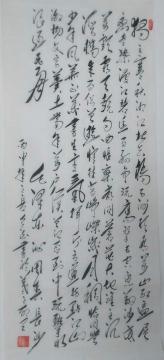 独立寒秋湘江北去橘子洲头看万山红遍层
林尽染漫江碧透百舸争流鹰击长空鱼翔浅
底万类霜天竞自由怅寥廓问苍茫大地谁主沉
浮携来百侣曾游忆往昔峥嵘岁月稠恰同学
少年风华正茂书生意气挥斥方遒指点江山
激扬文字粪土当年万户侯曾记否到中流击水
浪遏飞舟
毛泽东沁园春长沙
丙申